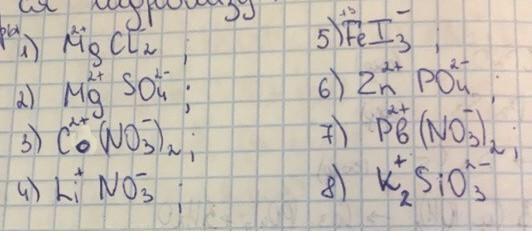 гидролизу
1) Mg²⁺Cl₂⁻;
2) Mg²⁺SO₄²⁻;
3) Co²⁺(NO₃⁻)₂;
4) Li⁺NO₃⁻;
5) Fe⁺³I₃⁻;
6) Zn²⁺PO₄²⁻;
7) Pb²⁺(NO₃⁻)₂;
8) K₂⁺SiO₃²⁻